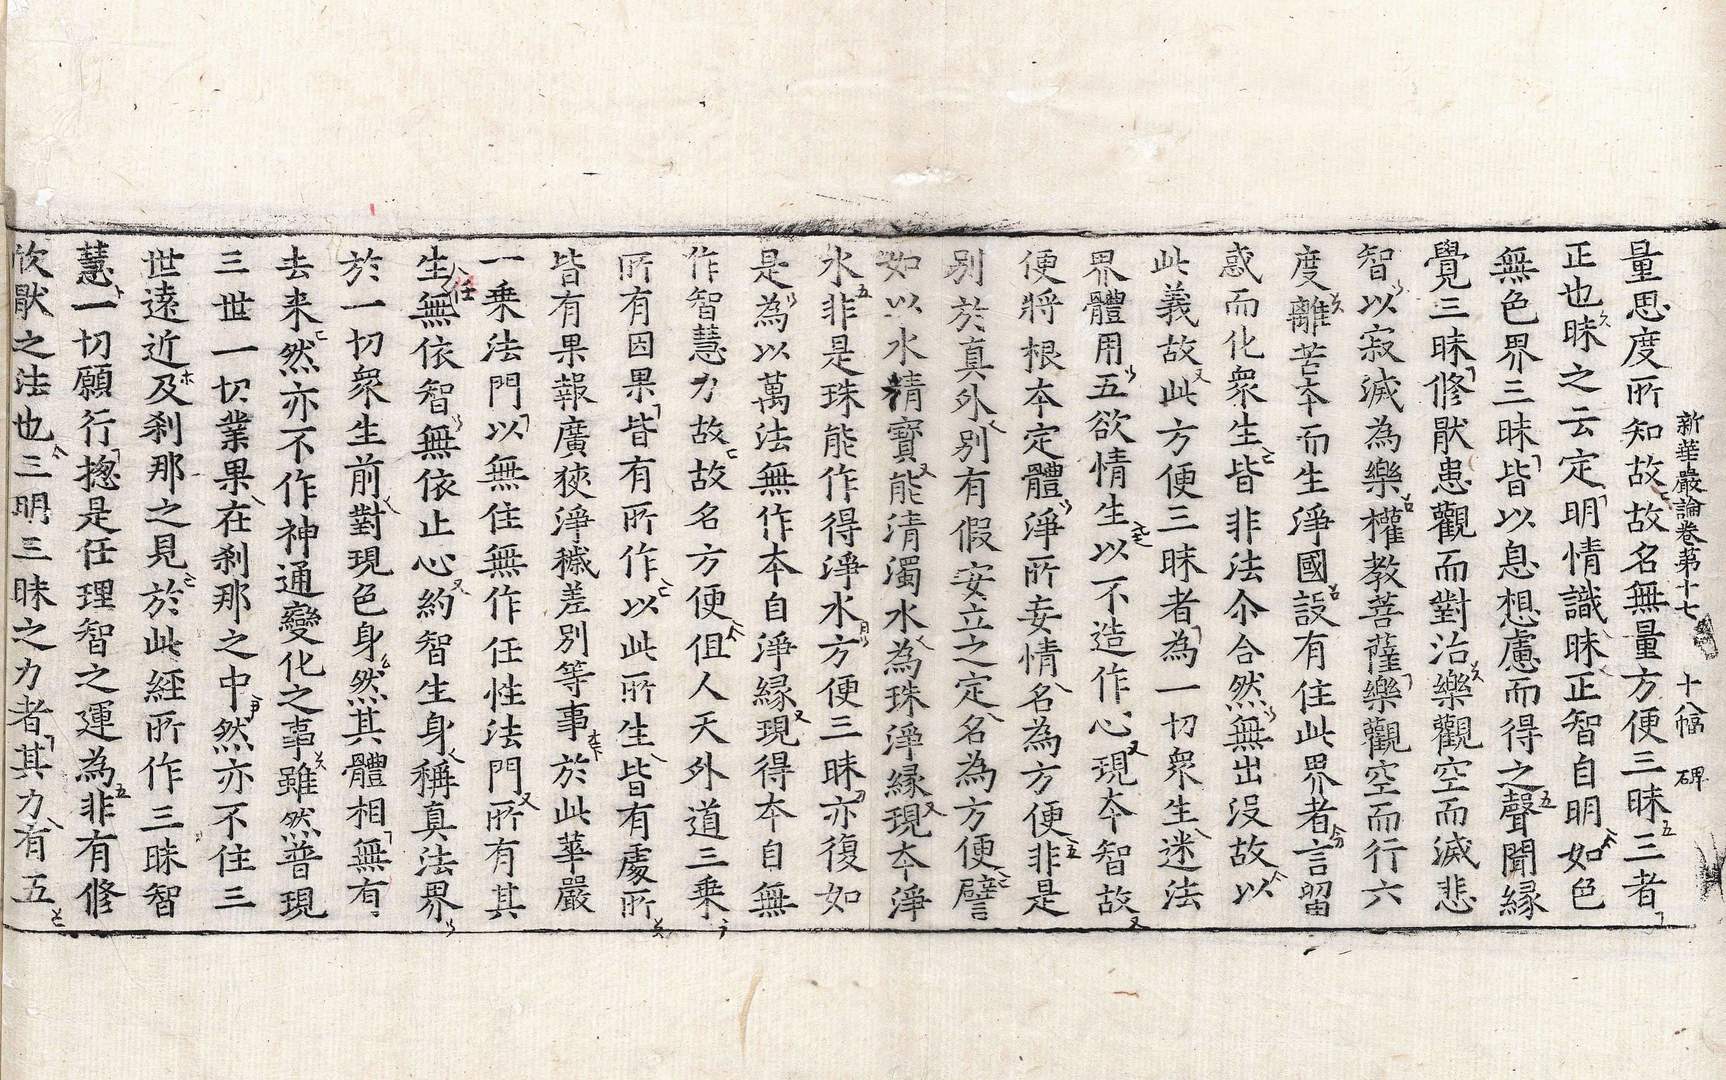 新華嚴論卷苐十七　十八幅　碑
量思度所知故故名無量方便三昧三者
正也昧之云定明情識昧正智自明如色
無色界三昧皆以息想慮而得之聲聞緣
覺三昧修猒患觀而對治樂觀空而滅悲
智以寂滅為樂權教菩薩樂觀空而行六
度離苦夲而生淨國設有住此界者言留
惑而化衆生皆非法尒合然無出沒故以
此義故此方便三昧者為一切衆生迷法
界體用五欲情生以不造作心現夲智故
便將根夲定體淨所妄情名為方便非是
別於真外別有假安立之定名為方便譬
如以水精寶能清濁水為珠淨縁現夲淨
水非是珠能作得淨水方便三昧亦復如
是為以萬法無作夲自淨縁現得夲自無
作智慧力故故名方便伹人天外道三乘
所有因果皆有所作以此所生皆有處所
皆有果報廣狹淨穢差別等事於此華嚴
一乘法門以無住無作任性法門所有其
生無依智無依止心約智生身稱真法界
於一切衆生前對現色身然其體相無有
去来然亦不作神通變化之事雖然普現
三世一切業果在刹那之中然亦不住三
世遠近及刹那之見於此経所作三昧智
慧一切願行揔是任理智之運為非有修
忻猒之法也三明三昧之力者其力有五